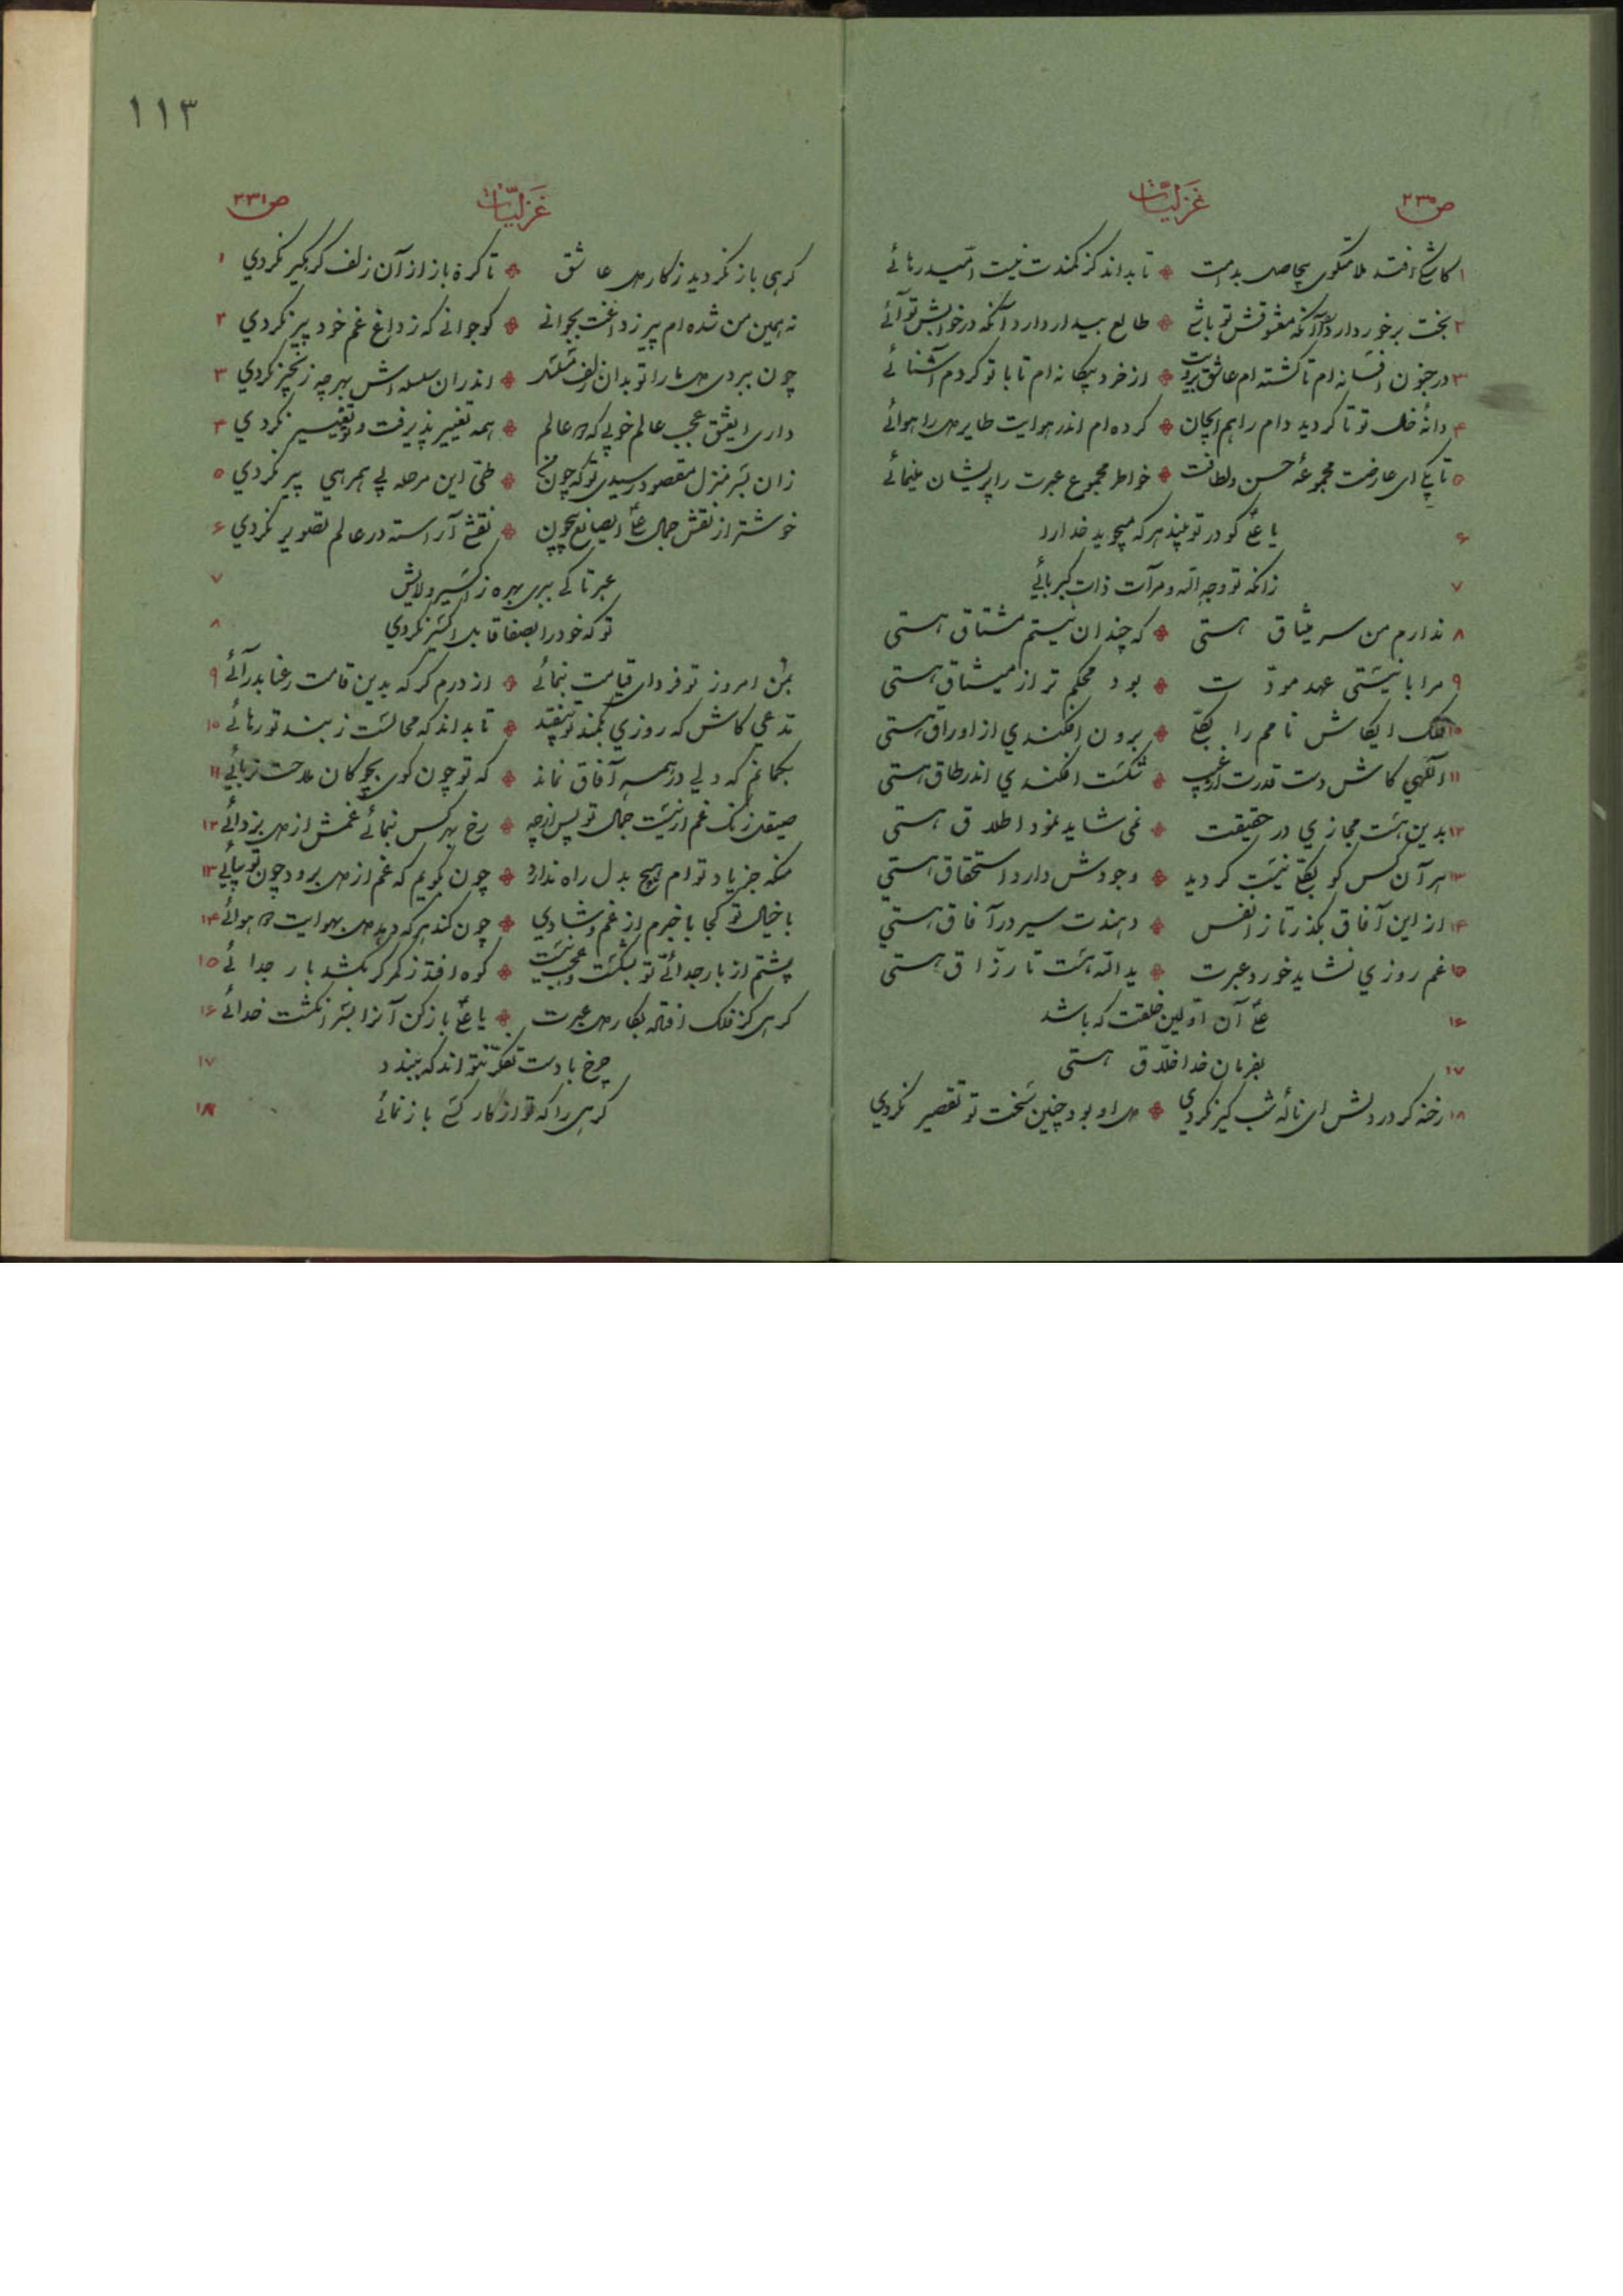 ص ۲۳۰
غزلیّات
۱ کاش افتد ملامتگوی بیحاصل بدامت ❖ تا بداند کز کمندت نیست امّید رهائے
۲ بخت برخوردار دارد آنکه معشوقش تو باشے ❖ طالع بیدار دارد آنکه در خوابش تو آئے
۳ در جنون افسانه ام تا گشته ام عاشق برویت ❖ از خرد بیگانه ام تا با تو کردم آشنائے
۴ دانهٔ خال تو تا گردید دام راهم ایجان ❖ کرده ام اندر هوایت طایر دل را هوائے
۵ تا بکے ای عارضت مجموعهٔ حسن و لطافت ❖ خاطر مجموع عبرت را پریشان مینمائے
۶ یا علی کو در تو بیند هر که میجوید خدا را
۷ زانکه تو وجه اللّه و مرآت ذات کبریائے
۸ ندارم من سر میثاق هستی ❖ که چندان نیستم مشتاق هستی
۹ مرا با نیستی عهد مودّت ❖ بود محکم تر از میثاق هستی
۱۰ فلک ایکاش نامم را بکلّے ❖ برون افکندی از اوراق هستی
۱۱ الٓهی کاش دست قدرت از غیب ❖ شکست افکندی اندر طاق هستی
۱۲ بدین هست مجازی در حقیقت ❖ نمی شاید نمود اطلاق هستی
۱۳ هر آن کس کو بکلّے نیست گردید ❖ وجودش دارد استحقاق هستی
۱۴ از این آفاق بگذر تا ز انفس ❖ دهندت سیر در آفاق هستی
۱۵ غم روزی نشاید خورد عبرت ❖ ید اللّه هست تا رزّاق هستی
۱۶ علی آن اوّلین خلقت که باشد
۱۷ بفرمان خدا خلّاق هستی
۱۸ رخنه کر در دلش ای نالهٔ شب گیر نکردی ❖ دل او بود چنین سخت تو تقصیر نکردی
۱۱۳
غزلیّات
ص ۲۳۱
گرهی باز نگردید ز کار دل عاشق ❖ تا گره باز از آن زلف گره گیر نکردی ۱
نه همین من شده ام پیر ز داغت بجوانی ❖ کو جوانی که ز داغ غم خود پیر نکردی ۲
چون ببردی دل ما را تو بدان زلف مسلسل ❖ اندر ان سلسله اش بهر چه زنجیر نکردی ۳
داری ایعشق عجب عالم خوبی که دل عالم ❖ همه تغییر پذیرفت و تو تغییر نکردی ۴
زان بسر منزل مقصود رسیدی تو که چون من ❖ طیّ این مرحله بی همرهی پیر نکردی ۵
خوشتر از نقش جمال علی ایصانع بیچون ❖ نقشے آراسته در عالم تصویر نکردی ۶
عبرتا کے ببری بهره ز اکسیر ولایش ۷
تو که خود را بصفا قابل اکسیر نکردی ۸
بمن امروز تو فردای قیامت بنمائے ❖ از درم گر که بدین قامت رعنا بدرآئے ۹
مدّعی کاش که روزی بکمند تو بیفتد ❖ تا بداند که محالست ز بند تو رهائے ۱۰
بگمانم که دلی در همه آفاق نماند ❖ که تو چون گوی بچوگان ملاحت نربائے ۱۱
صیقل زنگ غم ار نیست جمال تو پس از چه ❖ رخ بهر کس بنمائے غمش از دل بزدائے ۱۲
منکه جز یاد توام هیچ بدل راه ندارد ❖ چون بگویم که غم از دل برود چون تو بیائے ۱۳
با خیال تو کجا با خبرم از غم و شادی ❖ چون کند هر که دهد دل بهوایت دل هوائے ۱۴
پشتم از بار جدائے تو بشکست و عجب نیست ❖ کوه افتد ز کمر گر بکشد بار جدائے ۱۵
گرهی کز فلک افتاد بکار دل عبرت ❖ یا علی باز کن آنرا بسر انگشت خدائے ۱۶
چرخ با دست تفکّر نتواند که ببندد ۱۷
گرهی را که تو از کار کسے باز نمائے ۱۸